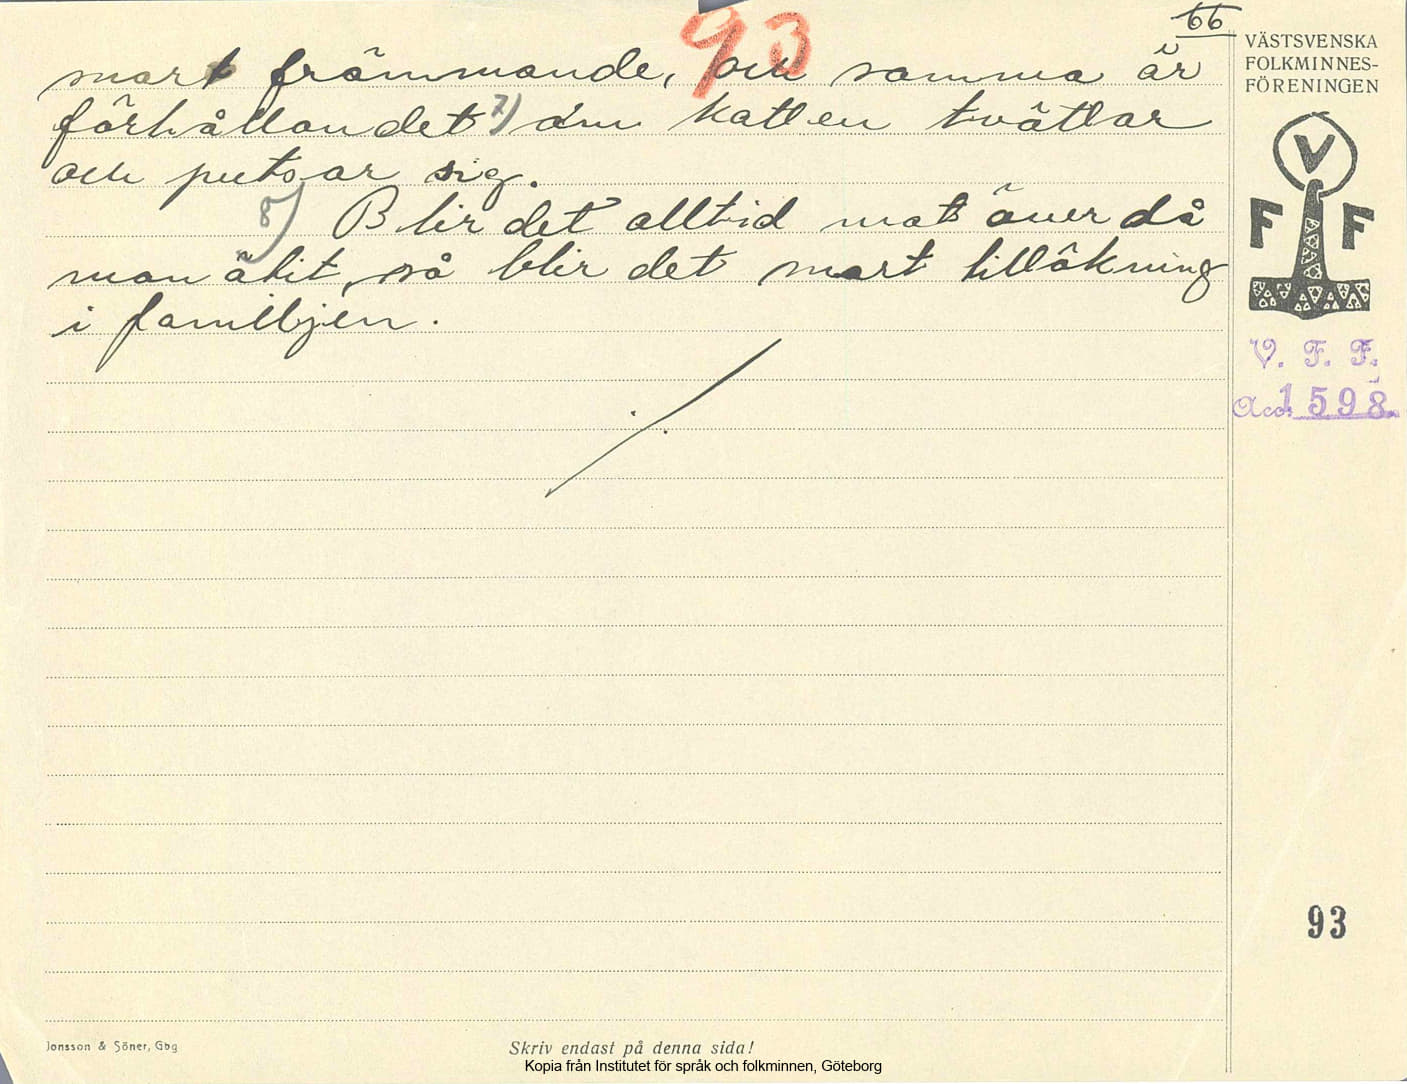 93
66
snart främmande, och samma är
förhållandet 7) om katten tvättar
och putsar sig.
8) Blir det alltid mat över då
man ätit, så blir det snart tillökning
i familjen.
VÄSTSVENSKA
FOLKMINNES-
FÖRENINGEN
V
F F
V. F. F.
Acc. 1598.
93
Jonsson & Söner, Gbg
Skriv endast på denna sida!
Kopia från Institutet för språk och folkminnen, Göteborg